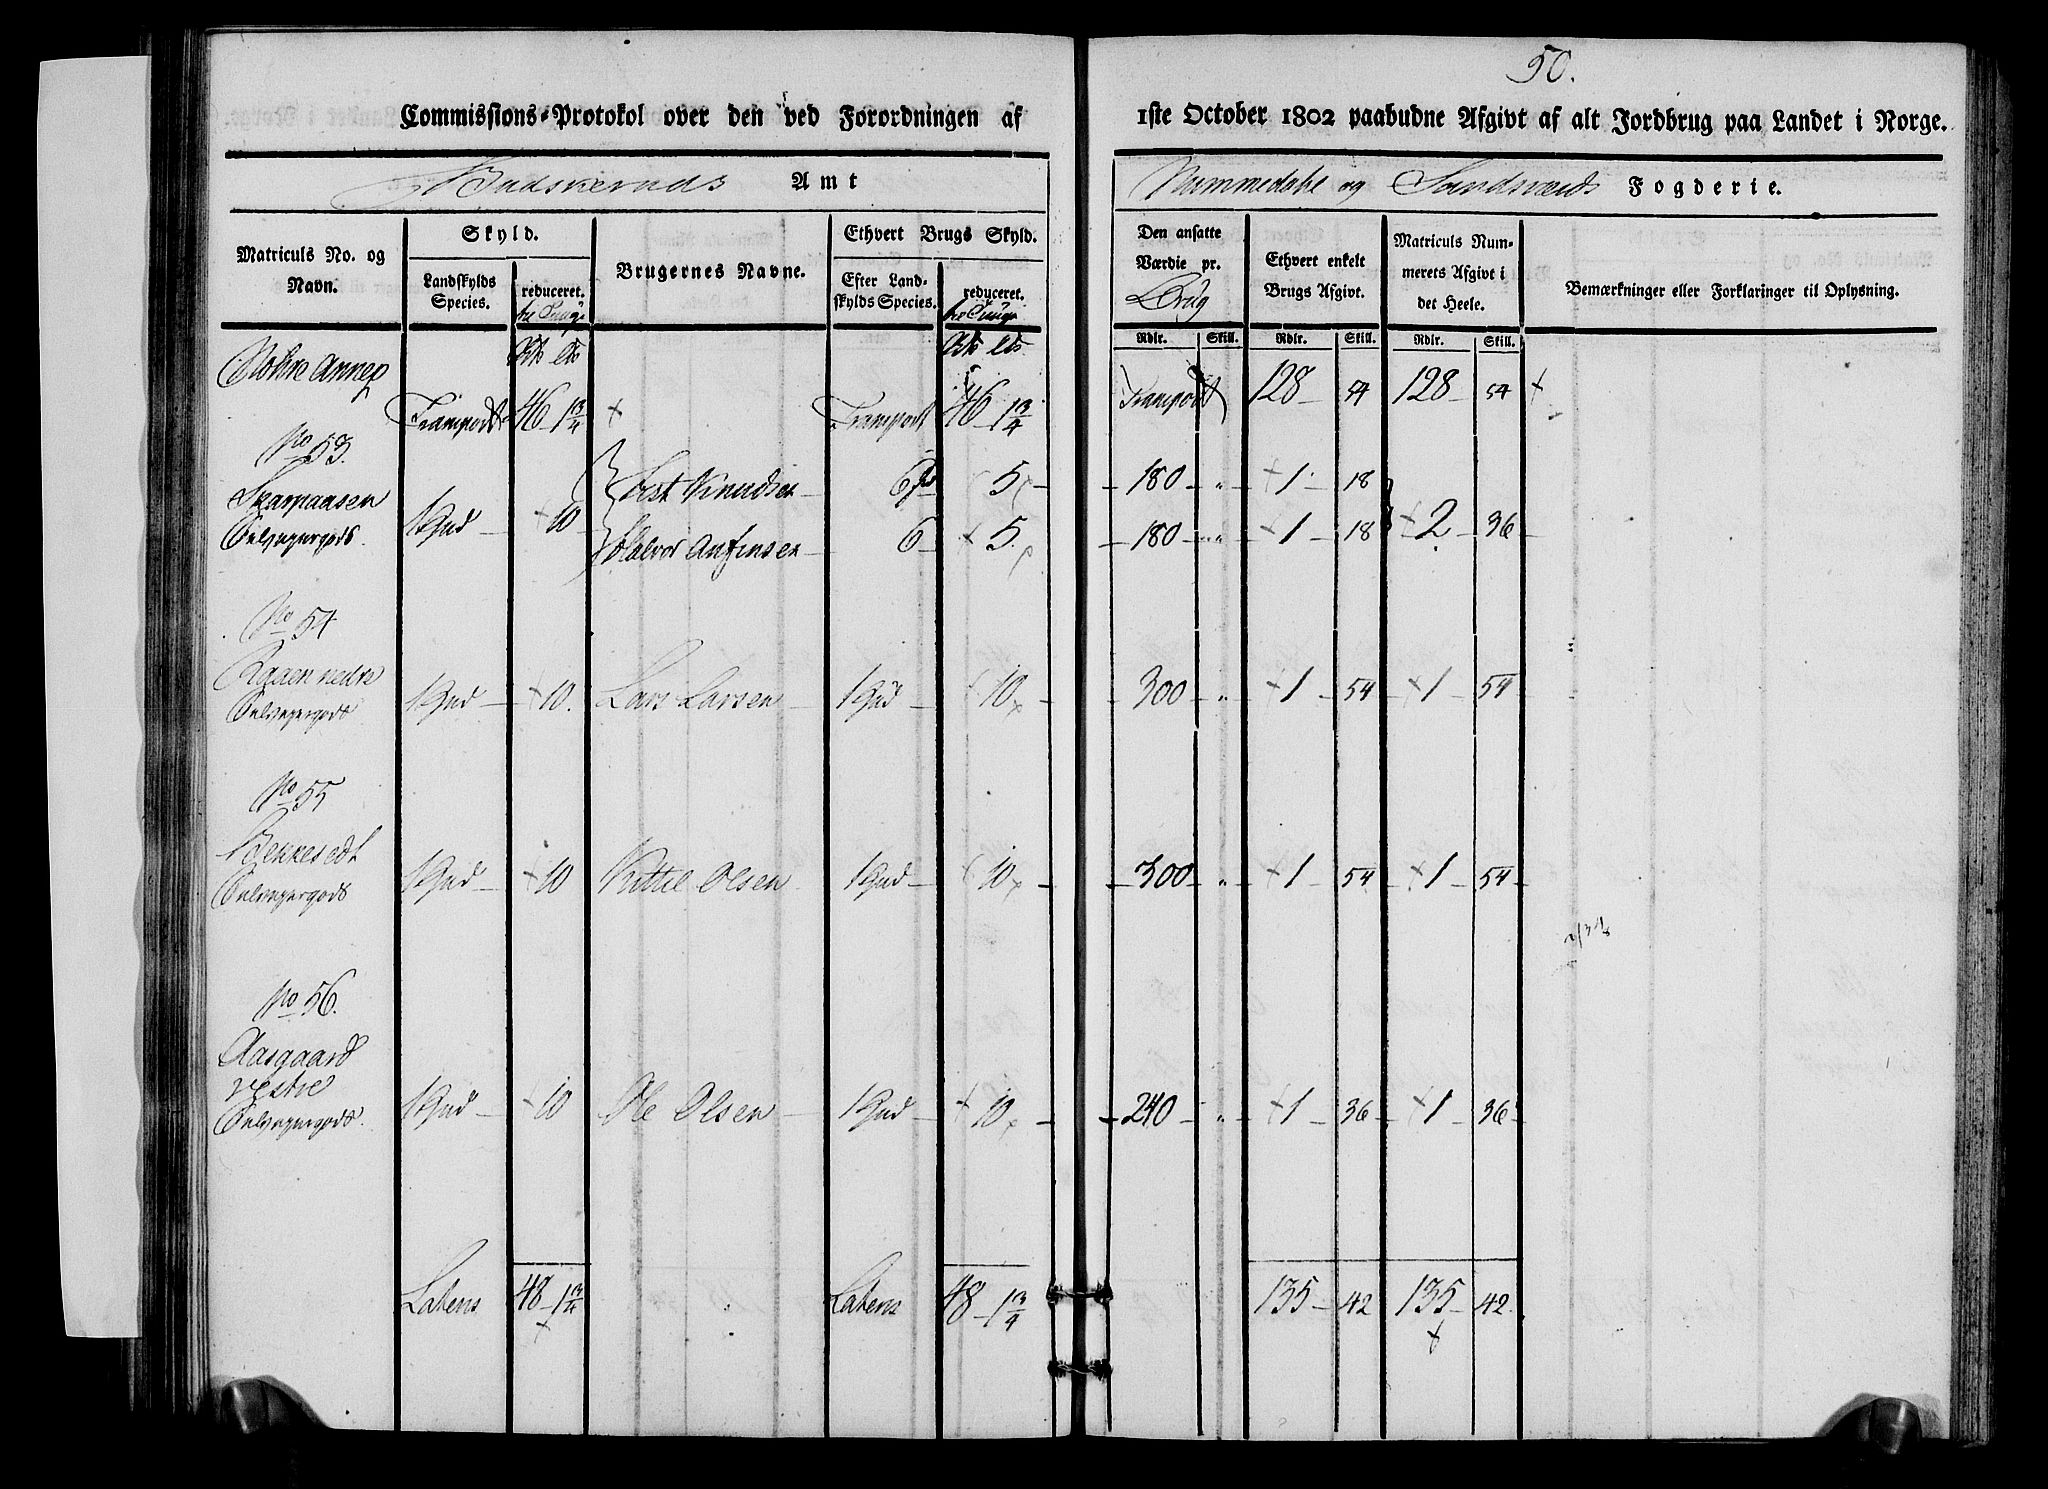 50.
Commissions-Protokol over den ved Forordningen af
1ste October 1802 paabudne Afgivt af alt Jordbrug paa Landet i Norge.
Budskeruds Amt
Nummedahl og Sandsværds Fogderie.
Matriculs No. og Navn.
Skyld.
Landskylds Species.
reduceret.
Brugernes Navne.
Ethvert Brugs Skyld.
Efter Landskylds Species.
reduceret.
Den ansatte Værdie pr. Brug
Ethvert enkelt Brugs Afgivt.
Matriculs Nummerets Afgivt i det Heele.
Bemærkninger eller Forklaringer til Oplysning.
Rdlr. Skill. Rdlr. Skill. Rdlr. Skill.
Transport 46 - 1 3/4 Transport 46 - 1 3/4 Transport 128 54 128 54
No 53.
1 Hud 10
6 5 180 1 18
Halvor Anfinsen 6 5 180 1 18 2 36
No 54
nedre
Selveyergods 1 Hud 10. Lars Larsen 1 Hud 10 300 1 54 1 54
No 55
Bekkesedt
Selveyergods 1 Hud 10 Kittil Olsen 1 Hud 10 300 1 54 1 54
No 56.
Aasgaard
vestre
Selveyergods 1 Hud 10 Ole Olsen 1 Hud 10 240 1 36 1 36
Latens 48 - 1 3/4 Latens 48 - 1 3/4 135 42 135 42